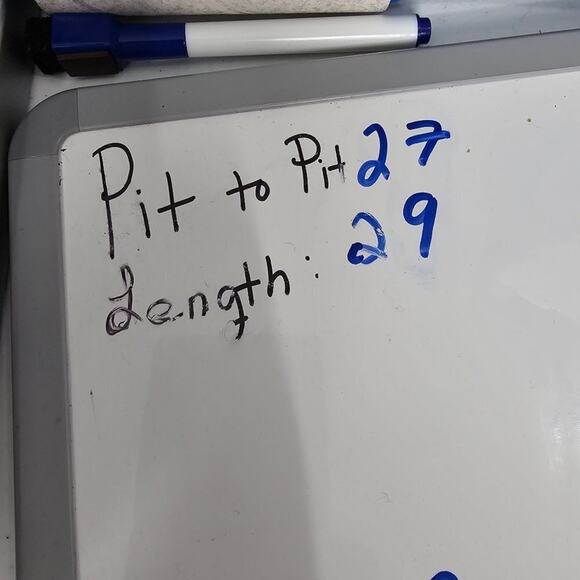 Pit to Pit 27
Length: 29